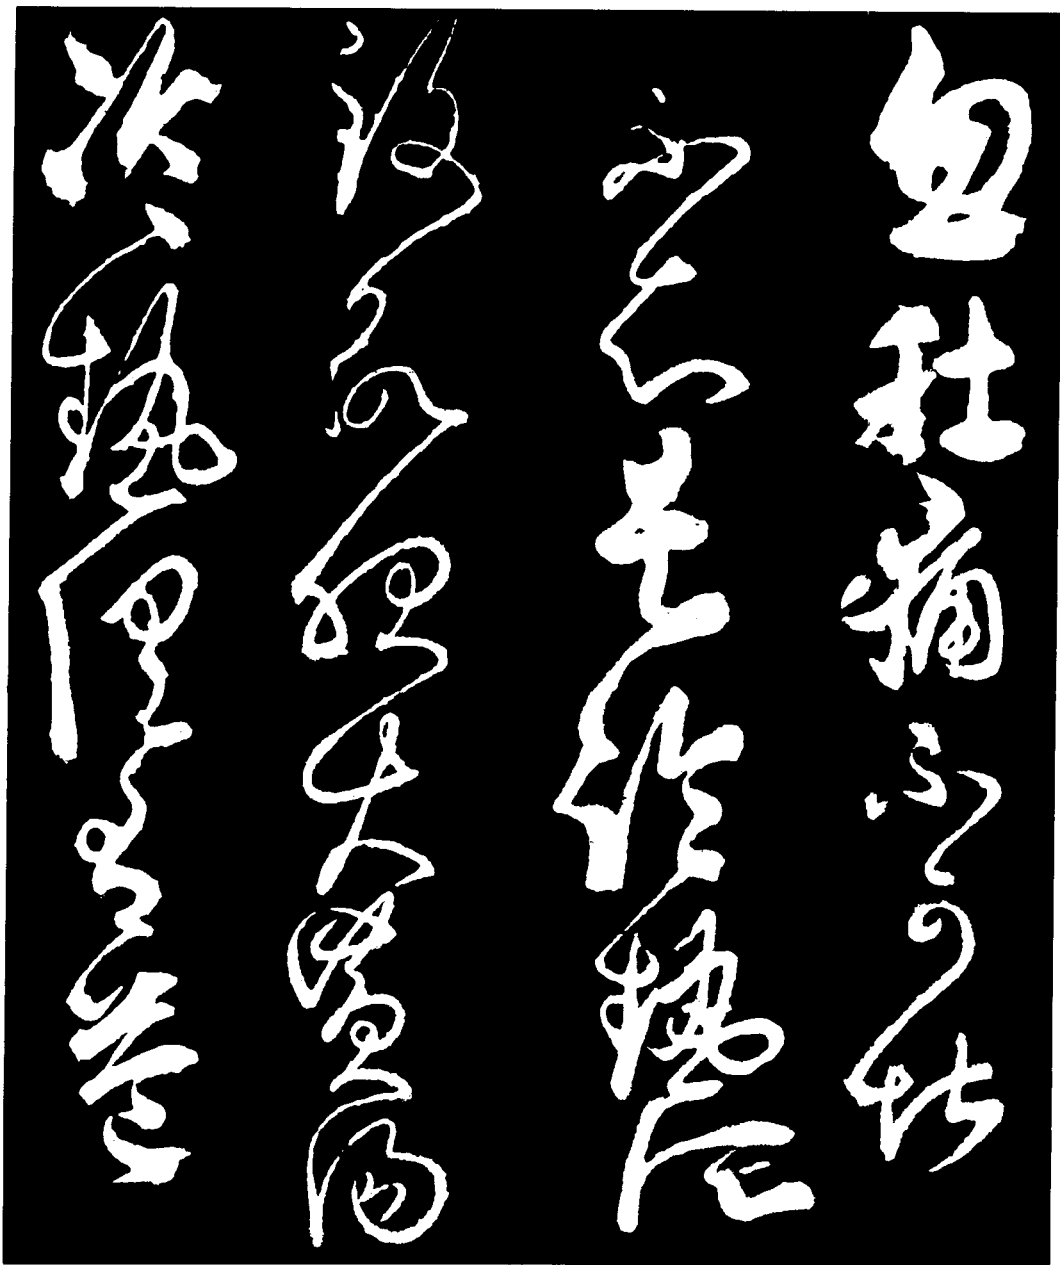 忽肚痛不可堪
不知是冷熱所
致欲服大黃湯
冷熱俱有益